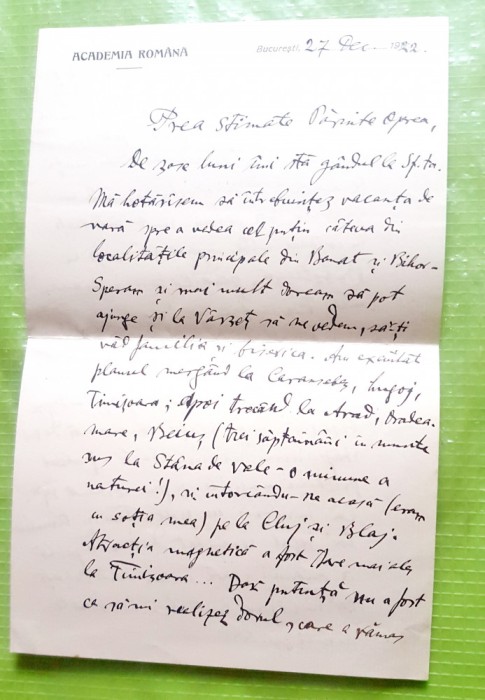 ACADEMIA ROMÂNĂ
București, 27 Dec. 1922.
Prea Stimate Părinte Oprea,
De zece luni îmi stă gândul la Sf. ta.
Mă hotărîsem să întrebuințez vacanța de
vară spre a vedea cel puțin câteva din
localitățile principale din Banat și Bihor.
Speram și mai mult doream să pot
ajunge și la Vârșeț să ne vedem, să-ți
văd familia și biserica. Am executat
planul mergând la Caransebeș, Lugoj,
Timișoara; apoi trecând la Arad, Oradea-
mare, Beiuș, (trei săptămâni în munte
sus la Stâna de Vale - o minune a
naturei!), și întorcându-ne acasă (eram
cu soția mea) pe la Cluj și Blaj.
Atracția magnetică a fost mare mai ales
la Timișoara... Dar putință nu a fost
ca să-mi realizez dorul, care a rămas